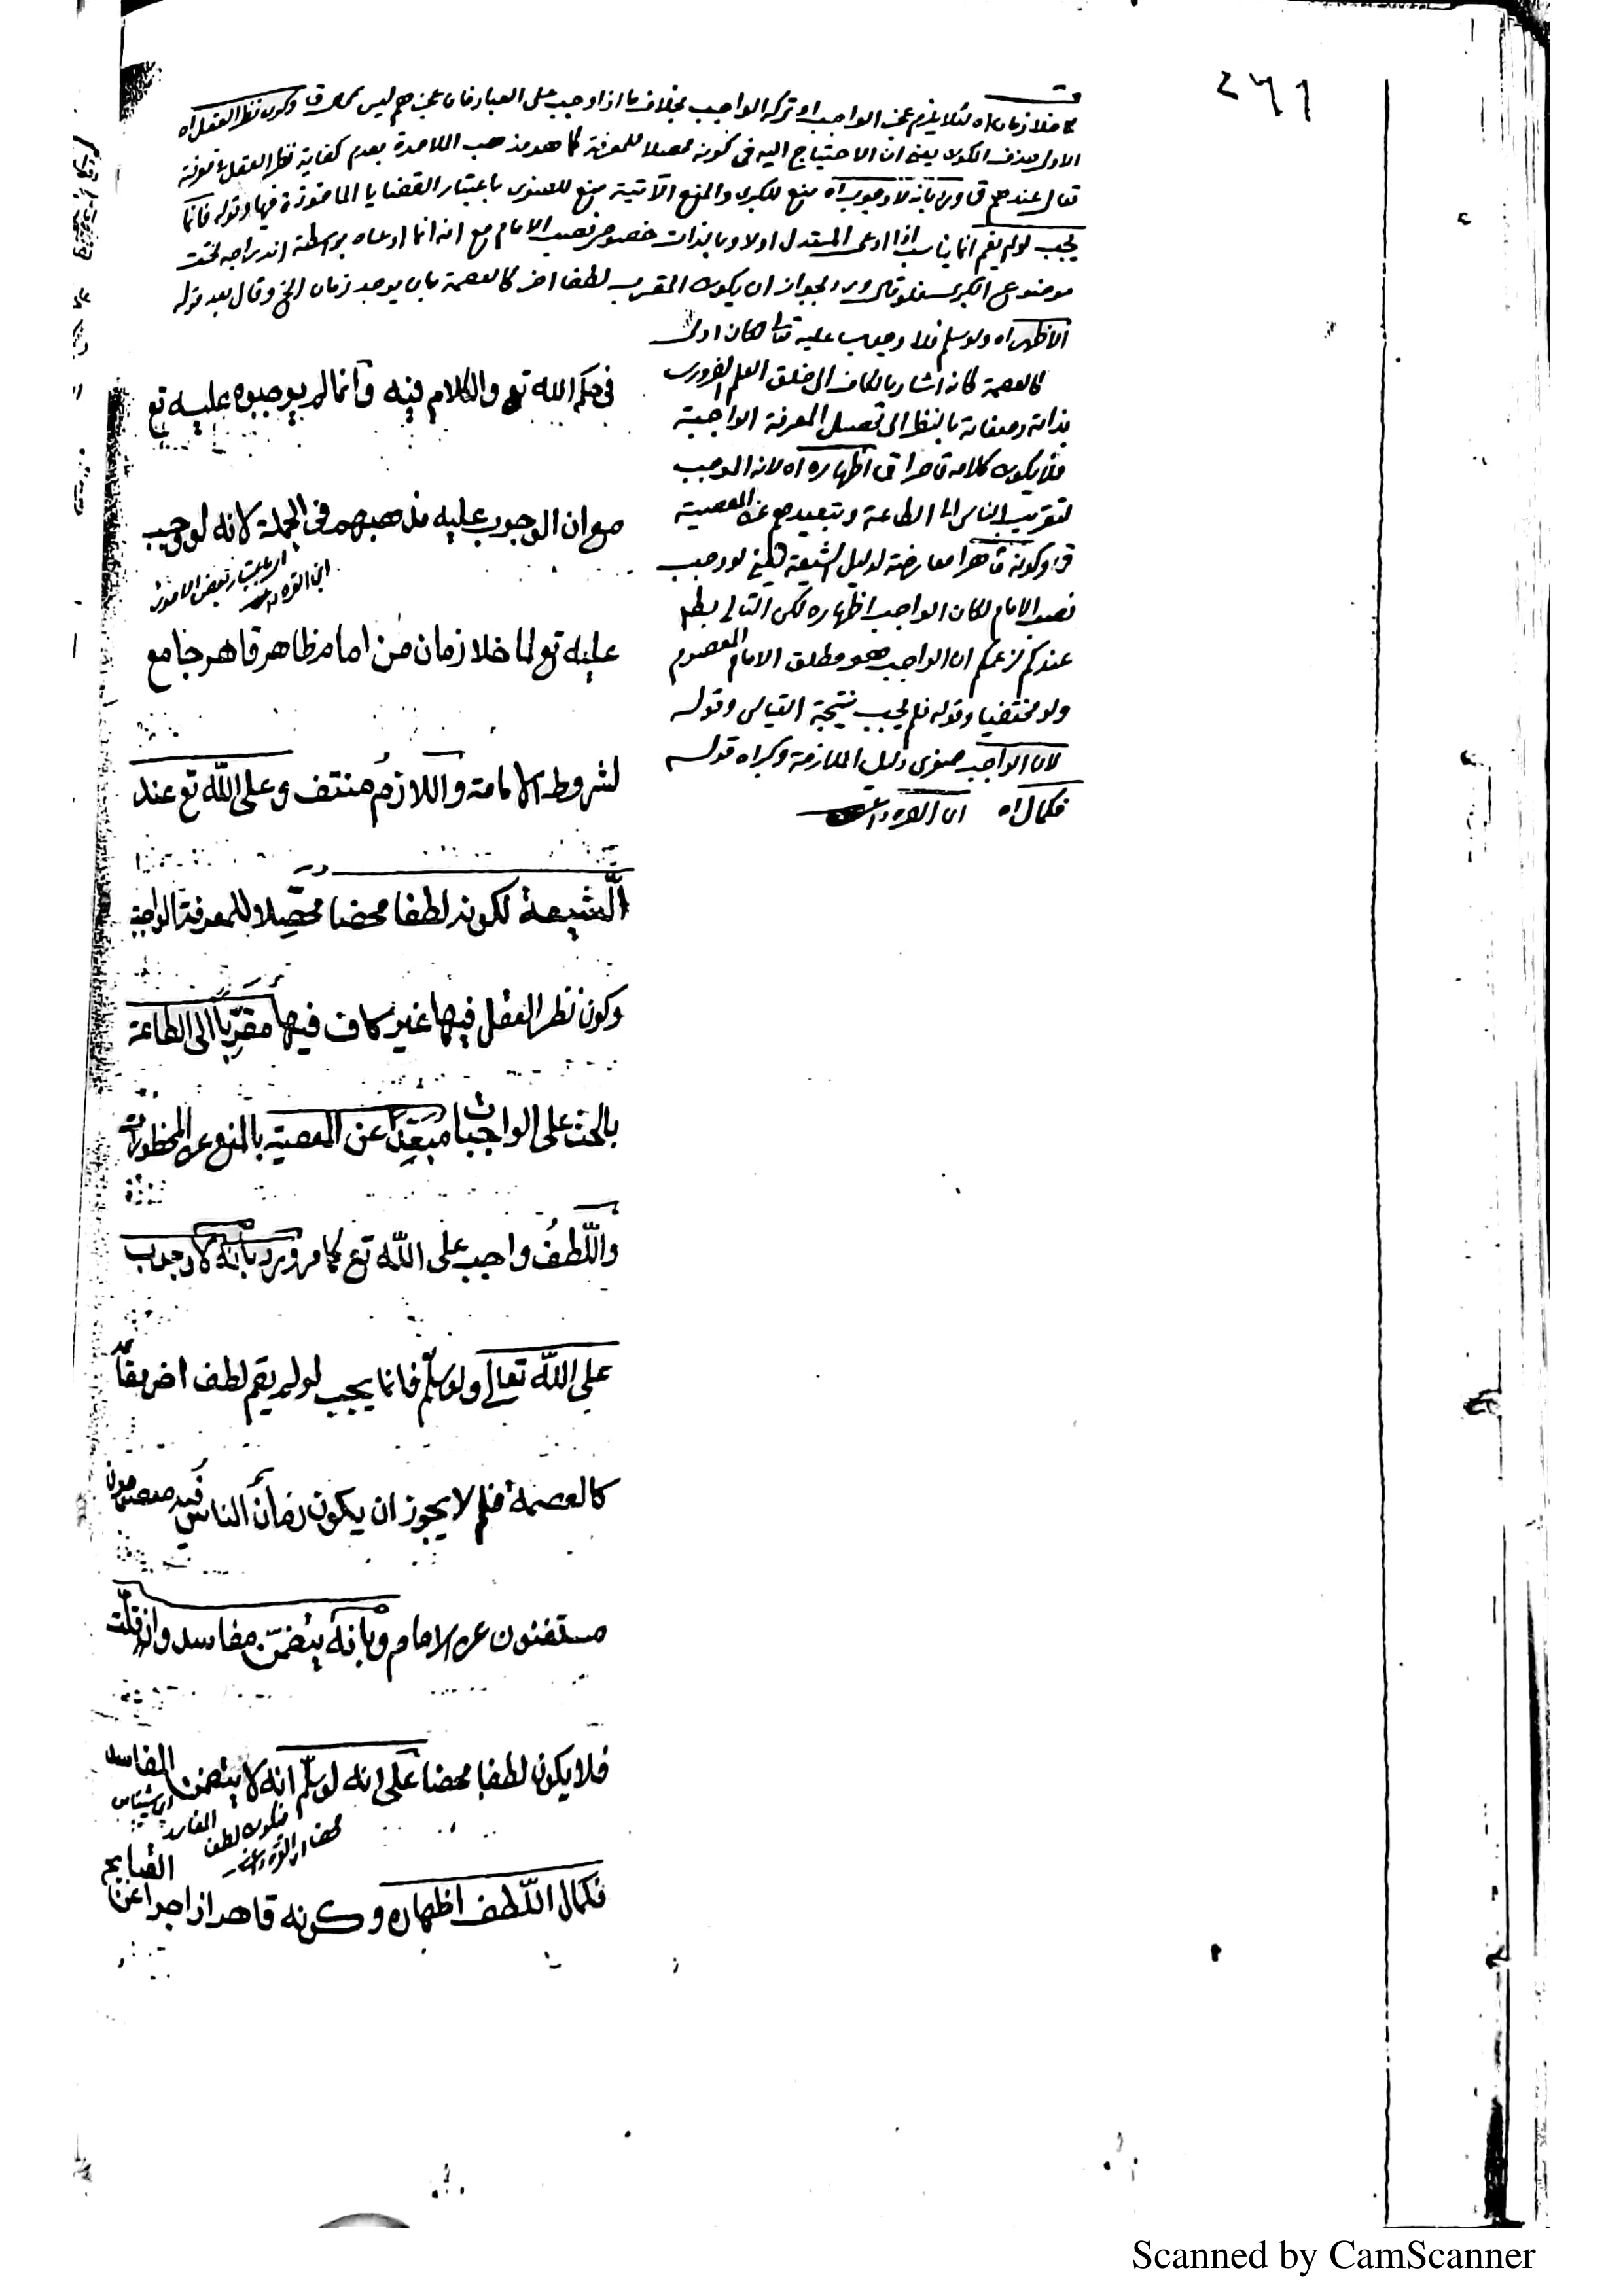 ٢٦١
لما خلا زمان اه لئلا يلزم عجز الواجب او تركه الواجب بخلاف ما اذا وجب على العباد فان عجزهم ليس وكون نظر العقل اه
الاول بحذف الكون يعني ان الاحتياج اليه في كونه محصلا للمعرفة كما هو مذهب الملاحدة بعدم كفاية نظر العقل
تعالى عندهم بانه لا وجوب اه منع للكبرى والمنع الآتية منع للصغرى باعتبار القضايا المأخوذة فيها وقوله فانما
يجب لو لم يقم انما يناسب اذا ادعى المستدل اولا وبالذات خصوص نصب الامام مع انه انما ادعاه بواسطة اندراجه تحت
موضوع الكبرى فلو قال ورد لجواز ان يكون المقرب لطفا اخر كالعصمة بان يوجد زمان الخ وقال بعد قوله
الاظهر اه ولو سلم فلا وجوب عليه تعالى لكان اولى
كالعصمة كانه اشار بالكاف الى خلق العلم الضروري
بذاته وصفاته بالنظر الى تحصيل المعرفة الواجبة
فلا يكون كلامه قاصرا اظهاره اه لانه الموجب
لتقريب الناس الى الطاعة وتبعيدهم عن المعصية
وكونه قاهرا معارضة لدليل الشيعة يعني لو وجب
نصب الامام لكان الواجب اظهاره لكن التالي بط
عندكم لزعمكم ان الواجب هو مطلق الامام المعصوم
ولو مختفيا وقوله فلم يجب نتيجة القياس وقوله
لان الواجب صغرى دليل الملازمة وكبراه قوله
فكمال اه ابن القره داغي
في حكم الله تع والكلام فيه وانما لم يوجبوه عليه تع
مع ان الوجوب عليه مذهبهم في الجملة لانه لو وجب
اي باعتبار بعض الامور
ابن القره داغي
عليه تع لما خلا زمان من امام ظاهر قاهر جامع
لشروط الامامة واللازم منتف وعلى الله تع عند
الشيعة لكونه لطفا محضا محصلا للمعرفة الواجبة
وكون نظر العقل فيها غير كاف فيها مقربا الى الطاعة
بالحث على الواجبات مبعدا عن المعصية بالمنع عن المحظورات
واللطف واجب على الله تع كما مر ورد بانه لا وجوب
على الله تعالى ولو سلم فانما يجب لو لم يقم لطف اخر مقامه
كالعصمة فلم لا يجوز ان يكون زمان الناس فيه معصومون
مستغنون عن الامام وبانه يتضمن مفاسد وان قلت
فلا يكون لطفا محضا على انه لو سلم انه لا يتضمن المفاسد
فيكون لطفا
محضا ابن القره داغي
فكمال اللطف اظهاره وكونه قاهرا زاجرا عن القبايح
Scanned by CamScanner